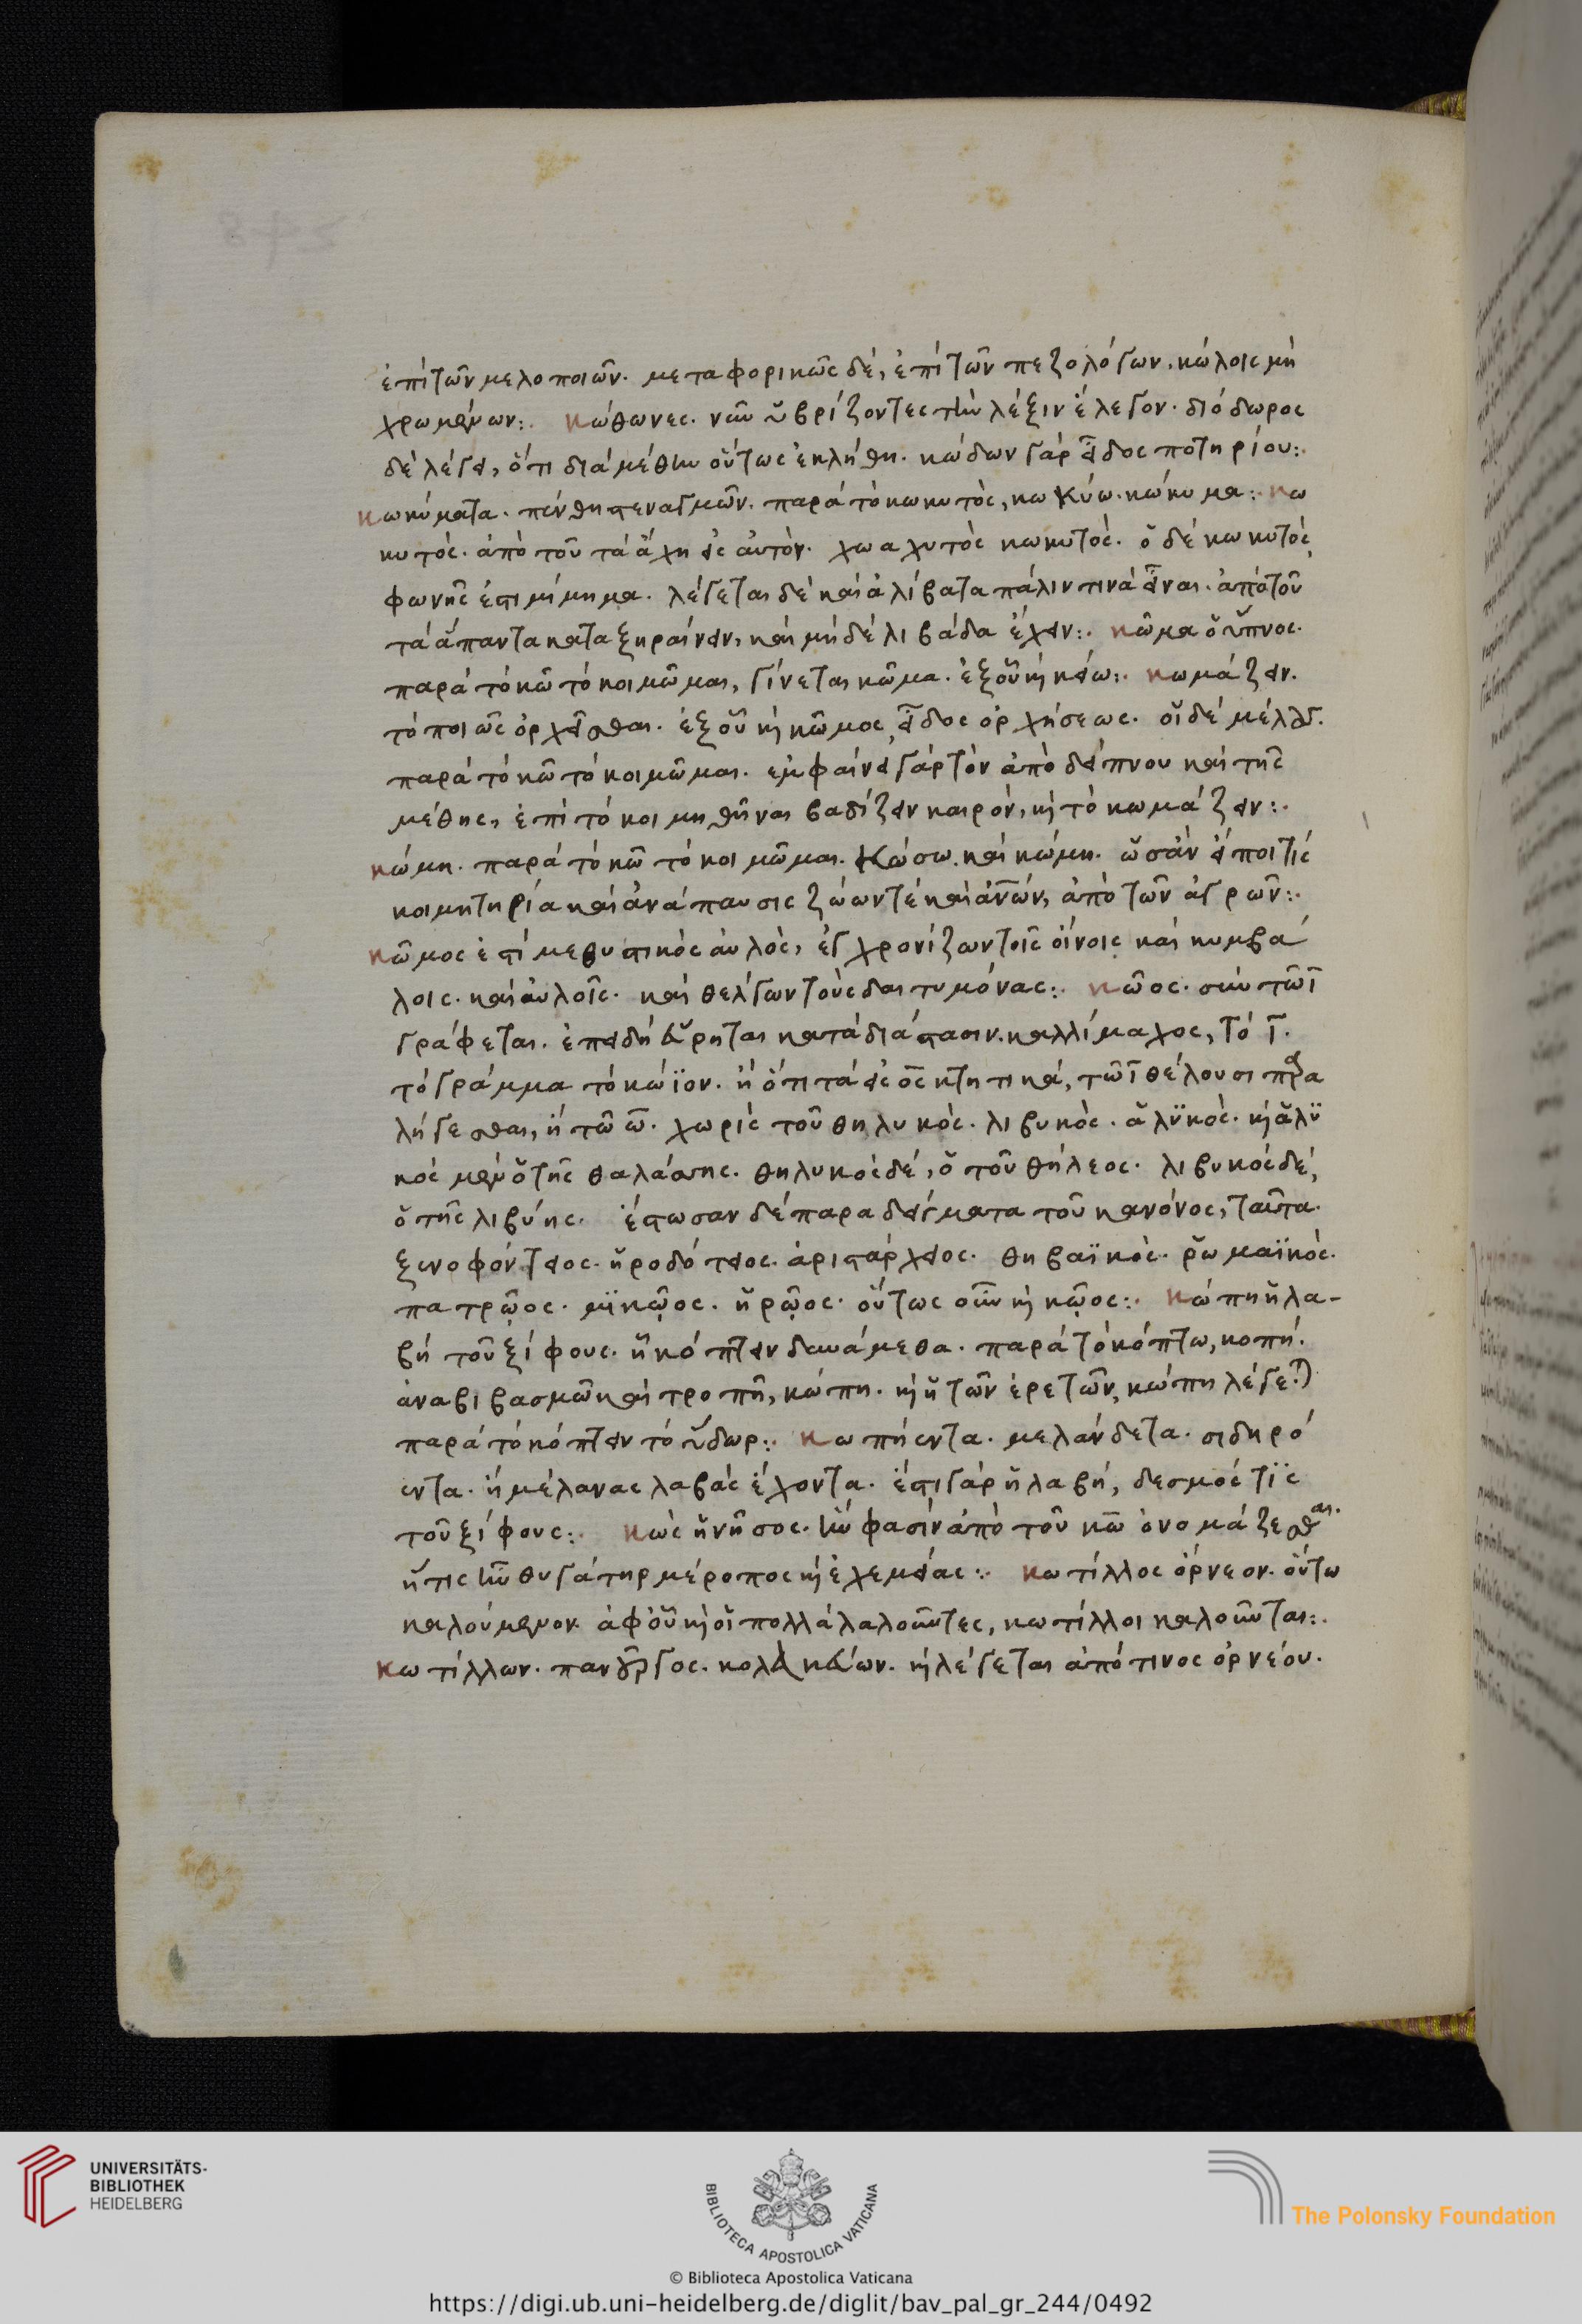 ἐπὶ τῶν μελοποιῶν· μεταφορικῶς δὲ, ἐπὶ τῶν πεζολόγων, κώλοις μὴ
χρωμένων:· κώθωνες· νῦν ὑβρίζοντες τὴν λέξιν ἔλεγον· διόδωρος
δὲ λέγει, ὅτι διὰ μέθην οὕτως ἐκλήθη· κώδων γὰρ εἶδος ποτηρίου:·
κωκύματα· πένθη στεναγμῶν· παρὰ τὸ κωκυτὸς, κωκύω· κώκυμα:· κω
κυτὸς· ἀπὸ τοῦ τὰ ἄχη εἰς αὐτὸν· χωαχυτὸς κωκυτὸς· ὁ δὲ κωκυτὸς
φωνῆς ἐστι μίμημα· λέγεται δὲ καὶ ἀλίβατα πάλιν τινὰ εἶναι· ἀπὸ τοῦ
τὰ ἅπαντα καταξηραίνειν, καὶ μὴ δὲ λιβάδα ἔχειν:· κῶμα ὁ ὕπνος·
παρὰ τὸ κῶ τὸ κοιμῶμαι, γίνεται κῶμα· ἐξ οὗ κὴ κείω:· κωμάζειν·
τὸ ποιῶς ὀρχεῖσθαι· ἐξ οὗ κὴ κῶμος, εἶδος ὀρχήσεως· οἱ δὲ μέλλει·
παρὰ τὸ κῶ τὸ κοιμῶμαι· ἐμφαίνει γὰρ τὸν ἀπὸ δείπνου καὶ τῆς
μέθης, ἐπὶ τὸ κοιμηθῆναι βαδίζειν καιρὸν, κὴ τὸ κωμάζειν:·
κώμη· παρὰ τὸ κῶ τὸ κοιμῶμαι· κώσω καὶ κώμη· ὡσὰν εἴποι τὶς
κοιμητηρία καὶ ἀνάπαυσις ζώων τὲ καὶ ἀνῶν, ἀπὸ τῶν ἀγρῶν:·
κῶμος ἐστὶ μεθυστικὸς αὐλὸς, ἐγχρονίζων τοῖς οἴνοις καὶ κυμβά
λοις· καὶ αὐλοῖς· καὶ θέλγων τοὺς δαιτυμόνας:· κῶος· σὺν τῶ ῑ
γράφεται· ἐπειδὴ εὕρηται κατὰ διάστασιν· καλλίμαχος, τὸ ῑ·
τὸ γράμμα τὸ κώϊον· ἢ ὅτι τὰ εἰς ος κτητικὰ, τῶ ῑ θέλουσι πα
λήγεσθαι, ἢ τῶ ω· χωρὶς τοῦ θηλυκὸς· λιβυκὸς· ἁλϋκὸς· κὴ ἁλϋ
κὸς μὲν ὁ τῆς θαλάσσης· θηλυκὸς δὲ, ὁ τοῦ θήλεος· λιβυκὸς δὲ,
ὁ τῆς λιβύης· ἔστωσαν δὲ παραδείγματα τοῦ κανόνος, ταῦτα·
ξενοφόντειος· ἡροδότειος· ἀριστάρχειος· θηβαϊκὸς· ῥωμαϊκὸς·
πατρῷος· μϊκῷος· ἡρῷος· οὕτως οὖν κὴ κῷος:· κώπη ἡ λα-
βὴ τοῦ ξίφους· ἧ κόπτειν δυνάμεθα· παρὰ τὸ κόπτω, κοπὴ·
ἀναβιβασμῶ καὶ τροπῆ, κώπη· κὴ ἡ τῶν ἐρετῶν, κώπη λέγεται
παρὰ τὸ κόπτειν τὸ ὕδωρ:· κωπήεντα· μελάνδετα· σιδηρό
εντα· ἢ μέλανας λαβὰς ἔχοντα· ἔστι γὰρ ἡ λαβὴ, δεσμὸς τὶς
τοῦ ξίφους:· κὼς ἡ νῆσος· ἣν φασὶν ἀπὸ τοῦ κῶ ὀνομάζεσθαι·
ἥτις ἦν θυγάτηρ μέροπος κὴ ἐχεμείας:· κωτίλλος ὄρνεον· οὕτω
καλούμενον· ἀφ' οὗ κὴ οἱ πολλὰ λαλοῦντες, κωτίλλοι καλοῦνται:·
κωτίλλων· πανοῦργος· κολακεύων· κὴ λέγεται ἀπό τινος ὀρνέου·
UNIVERSITÄTS-
BIBLIOTHEK
HEIDELBERG
BIBLIOTECA APOSTOLICA VATICANA
The Polonsky Foundation
© Biblioteca Apostolica Vaticana
https://digi.ub.uni-heidelberg.de/diglit/bav_pal_gr_244/0492